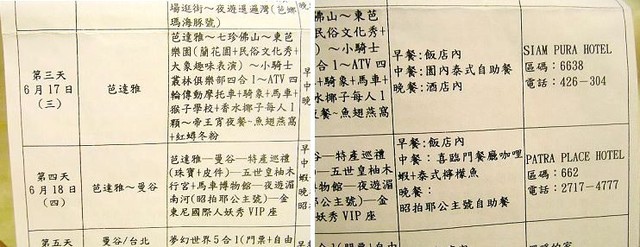 場逛街～夜遊暹邏灣(芭娜
瑪海豚號)
第三天
6 月 17 日
(三)
芭達雅
芭達雅～七珍佛山～東芭
樂園(蘭花園+民俗文化秀+
大象趣味表演)～小騎士
叢林俱樂部四合1～ATV 四
輪傳動摩托車+騎象+馬車+
猴子學校+香水椰子每人1
顆～帝王宵夜餐~魚翅燕窩
+紅蟳冬粉
早
中
晚
第四天
6 月 18 日
(四)
芭達雅～曼谷
芭達雅—曼谷—特產巡禮
(珠寶+皮件)—五世皇柚木
行宮+馬車博物館—夜遊湄
南河(昭拍耶公主號)—金
東尼國際人妖秀 VIP 座
早
中
蝦
晚
昭
第五天
曼谷/台北
夢幻世界5合1(門票+自由
早
佛山～東芭
民俗文化秀
)～小騎士
1～ATV 四
騎象+馬車
椰子每人1
餐~魚翅燕窩
早餐:飯店內
中餐:園內泰式自助餐
晚餐:酒店內
SIAM PURA HOTEL
區碼:6638
電話:426-304
谷—特產巡禮
—五世皇柚木
館—夜遊湄
主號)—金
秀 VIP 座
早餐:飯店內
中餐:喜臨門餐廳咖哩
蝦+泰式檸檬魚
晚餐:
昭拍耶公主號自助餐
PATRA PLACE HOTEL
區碼:662
電話:2717-4777
1(門票+自由
早餐:飯店內